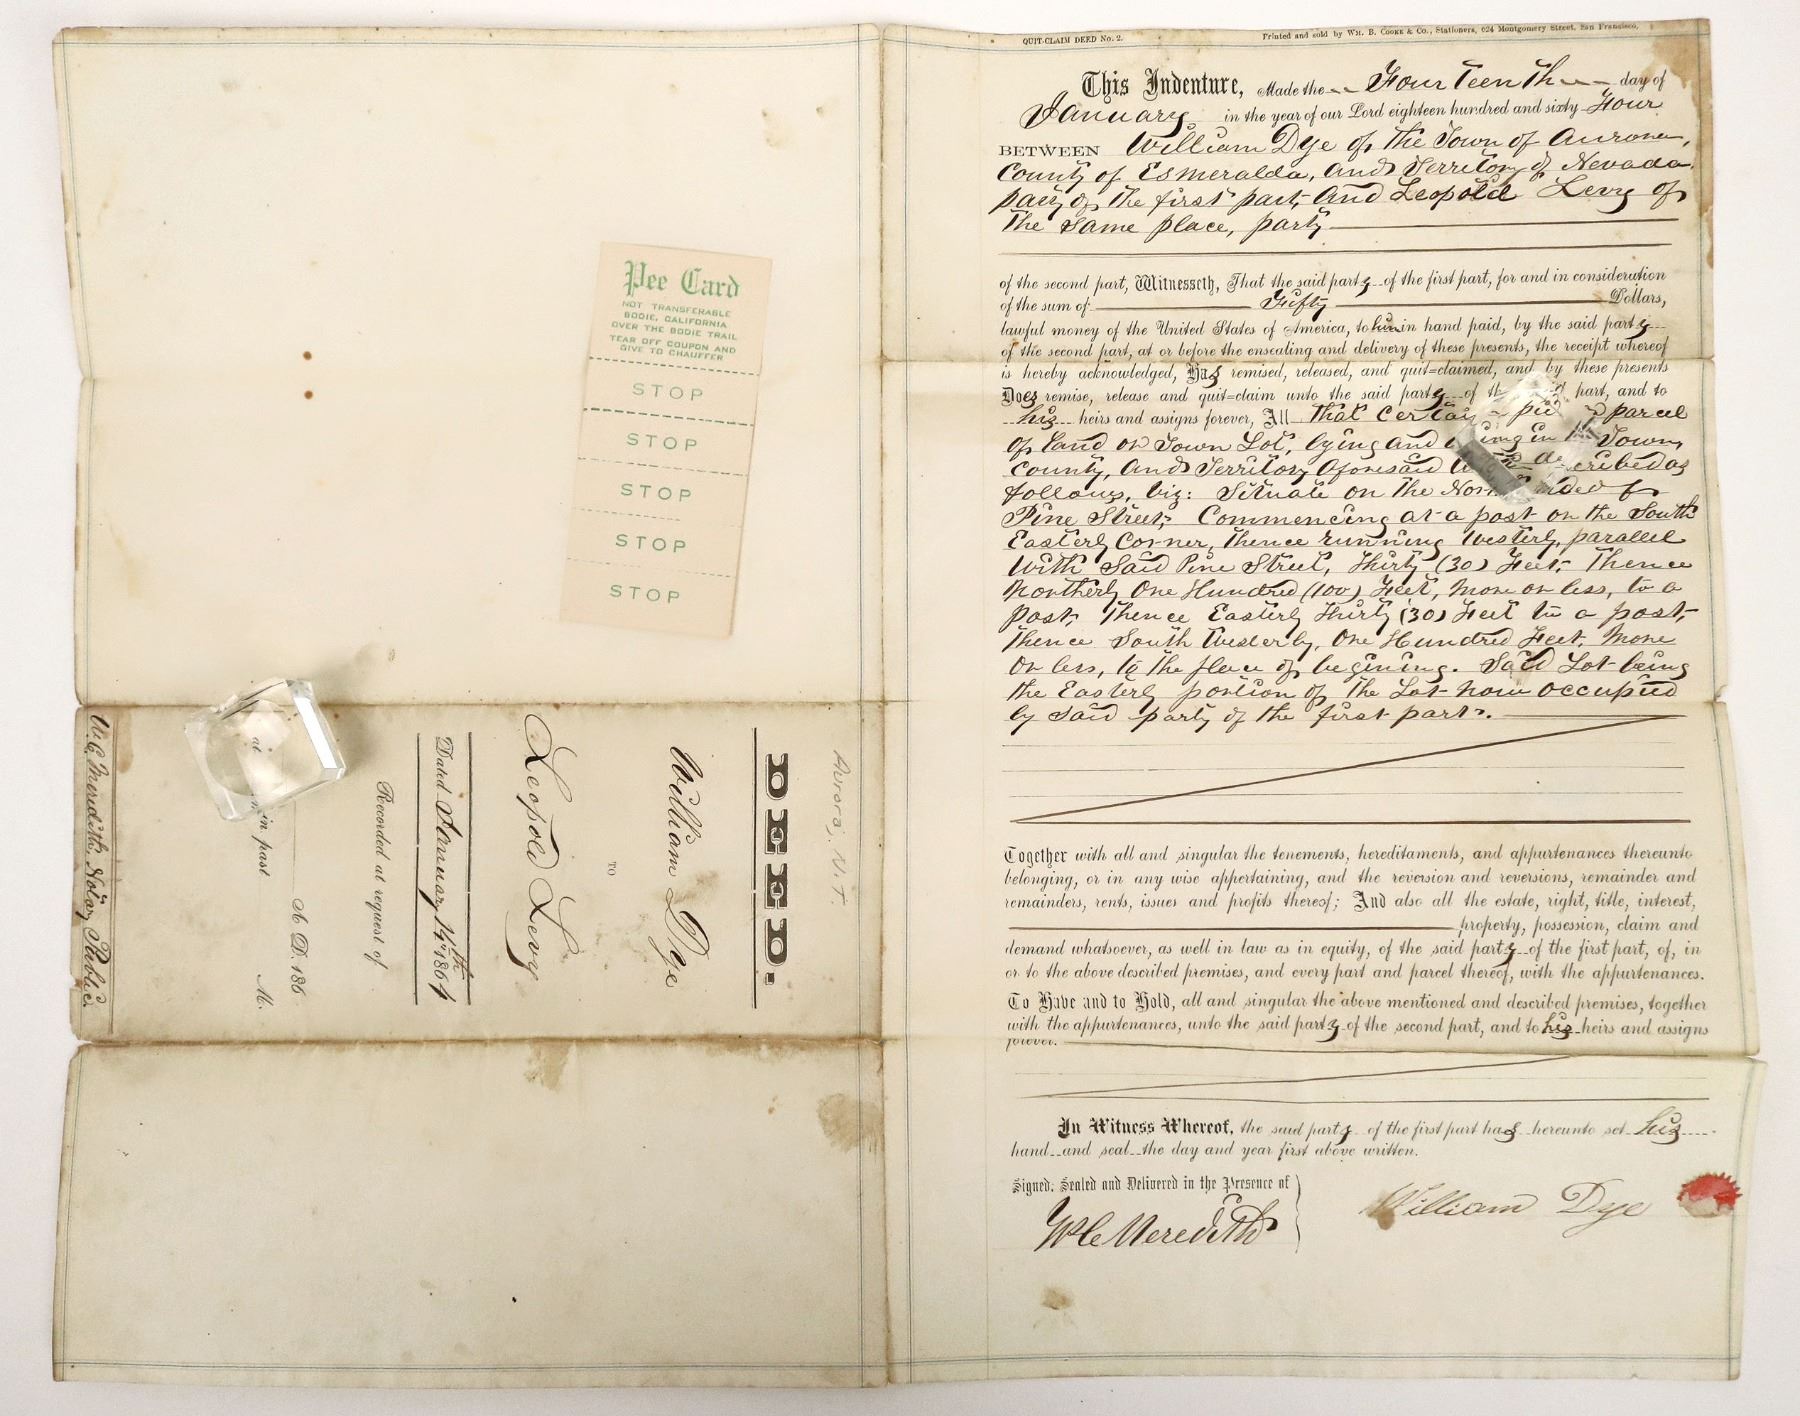 QUIT-CLAIM DEED No. 2.
Printed and sold by WM. B. COOKE & Co., Stationers, 624 Montgomery Street, San Francisco.
This Indenture, Made the Fourteenth day of
January in the year of our Lord eighteen hundred and sixty-Four
BETWEEN William Dye of the Town of Aurora,
County of Esmeralda, and Territory of Nevada
party of the first part, and Leopold Levy of
the same place, party
of the second part, Witnesseth, That the said party of the first part, for and in consideration
of the sum of Fifty Dollars,
lawful money of the United States of America, to him in hand paid, by the said party
of the second part, at or before the ensealing and delivery of these presents, the receipt whereof
is hereby acknowledged, Has remised, released, and quit=claimed, and by these presents
Does remise, release and quit=claim unto the said party of the part, and to
his heirs and assigns forever, All that certain parcel
of land or Town Lot, lying and in Town,
County, and Territory aforesaid described as
follows, viz: Situate on the North side of
Pine Street, Commencing at a post on the South
Easterly Corner, thence running Westerly, parallel
with said Pine Street, Thirty (30) Feet, Thence
Northerly One Hundred (100) Feet, more or less, to a
post, Thence Easterly Thirty (30) Feet to a post,
Thence South Westerly, One Hundred Feet, more
or less, to the place of begining. Said Lot being
the Easterly portion of the Lot now occupied
by said party of the first part.
Together with all and singular the tenements, hereditaments, and appurtenances thereunto
belonging, or in any wise appertaining, and the reversion and reversions, remainder and
remainders, rents, issues and profits thereof; And also all the estate, right, title, interest,
property, possession, claim and
demand whatsoever, as well in law as in equity, of the said party of the first part, of, in
or to the above described premises, and every part and parcel thereof, with the appurtenances.
To Have and to Hold, all and singular the above mentioned and described premises, together
with the appurtenances, unto the said party of the second part, and to his heirs and assigns
forever.
In Witness Whereof, the said party of the first part has hereunto set his
hand and seal the day and year first above written.
Signed, Sealed and Delivered in the Presence of
W C Meredith
William Dye
Pee Card
NOT TRANSFERABLE
BODIE, CALIFORNIA
OVER THE BODIE TRAIL
TEAR OFF COUPON AND
GIVE TO CHAUFFER
STOP
STOP
STOP
STOP
STOP
Aurora, N.T.
DEED.
William Dye
TO
Leopold Levy
Dated January 14th 1864
Recorded at request of
A. D. 186
at in past M.
W. C. Meredith, Notary Public.